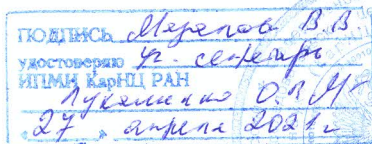 ПОДПИСЬ Мазалов В.В
удостоверяю уч. секретарь
ИПМИ КарНЦ РАН
Лукашенко О.В
«27» апреля 2021 г